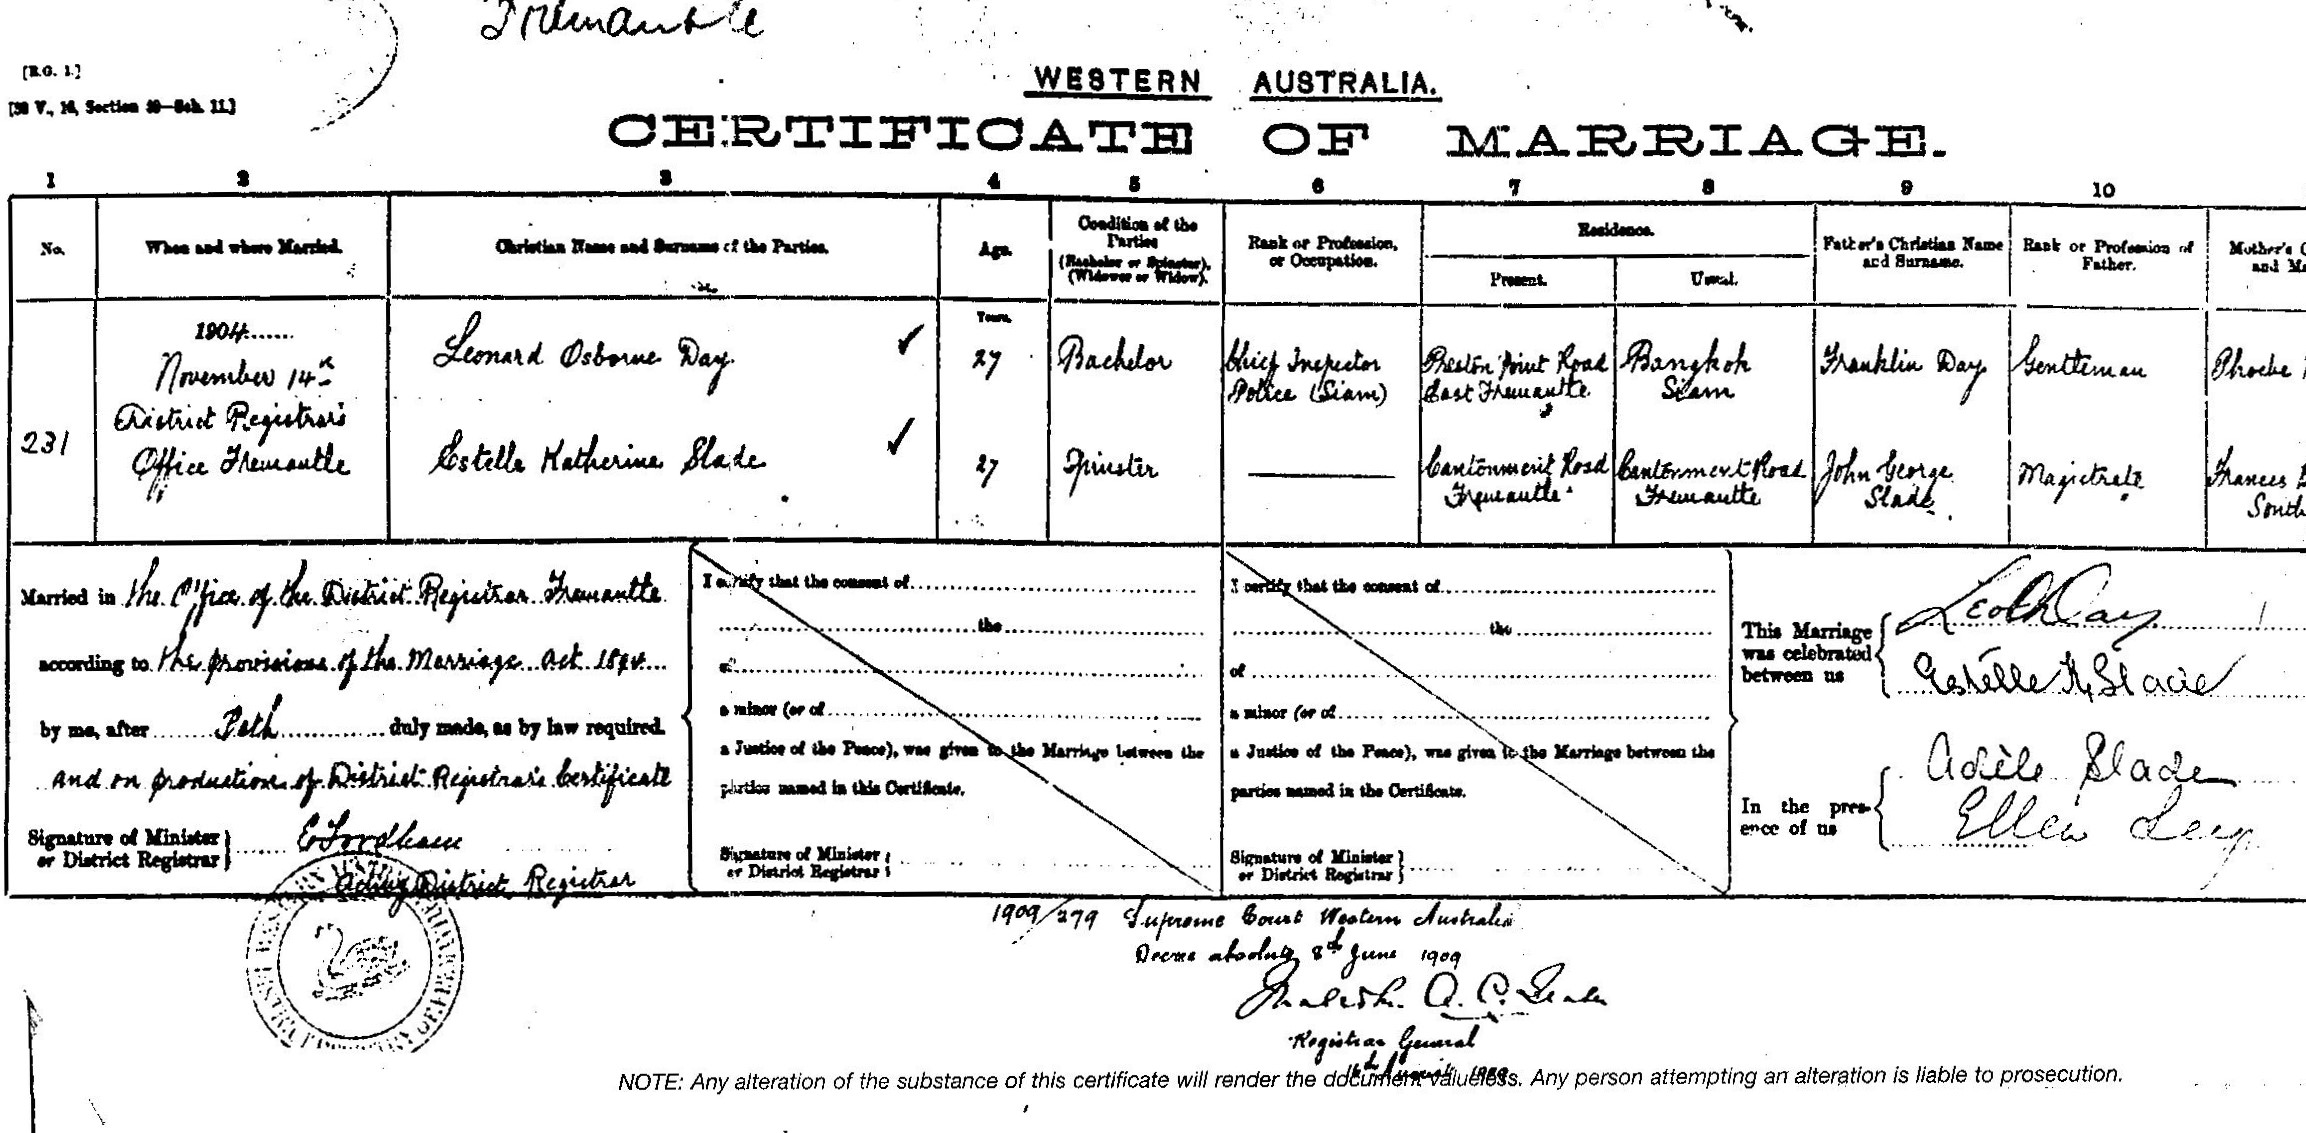 Fremantle
[R.G. 1.]
[58 V., 16, Section 40—Sch. 11.]
WESTERN AUSTRALIA.
CERTIFICATE OF MARRIAGE.
1 2 3 4 5 6 7 8 9 10
No.
When and where Married.
Christian Name and Surname of the Parties.
Age.
Condition of the
Parties
(Bachelor or Spinster),
(Widower or Widow).
Rank or Profession,
or Occupation.
Residence.
Present.
Usual.
Father's Christian Name
and Surname.
Rank or Profession of
Father.
Mother's
and
231
1904
November 14th
District Registrar's
Office Fremantle
Years.
Leonard Osborne Day
27
Bachelor
Chief Inspector
Police (Siam)
Preston Point Road
East Fremantle
Bangkok
Siam
Franklin Day
Gentleman
Phoebe
Estella Katherine Slade
27
Spinster
Cantonment Road
Fremantle
Cantonment Road
Fremantle
John George
Slade
Magistrate
Frances
South
Married in the Office of the District Registrar Fremantle
according to the provisions of the Marriage Act 1894
by me, after Oath duly made, as by law required.
and on production of District Registrar's Certificate
Signature of Minister
or District Registrar
Acting District Registrar
I certify that the consent of
the
of
a minor (or of
a Justice of the Peace), was given to the Marriage between the
parties named in this Certificate.
Signature of Minister
or District Registrar
I certify that the consent of
the
of
a minor (or of
a Justice of the Peace), was given to the Marriage between the
parties named in the Certificate.
Signature of Minister
or District Registrar
This Marriage
was celebrated
between us
Day
Estelle K Slade
In the pres-
ence of us
Adèle Slade
Ellen
1909/279 Supreme Court Western Australia
Decree absolute 8th June 1909
Registrar General
August 1909
NOTE: Any alteration of the substance of this certificate will render the document valueless. Any person attempting an alteration is liable to prosecution.